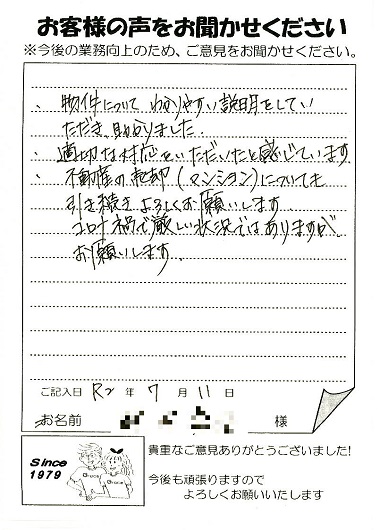 お客様の声をお聞かせください
※今後の業務向上のため、ご意見をお聞かせください。
、物件について わかりやすい説明をしてい
ただき、助かりました。
、適切な対応をいただいたと感じています
、不動産の売却(マンション)についても
引き続きよろしくお願いします
コロナ禍で厳しい状況ではありますが、
お願いします。
ご記入日 R2 年 7 月 11 日
お名前 様
Since
1979
Grace
Grace
貴重なご意見ありがとうございました!
今後も頑張りますので
よろしくお願いいたします